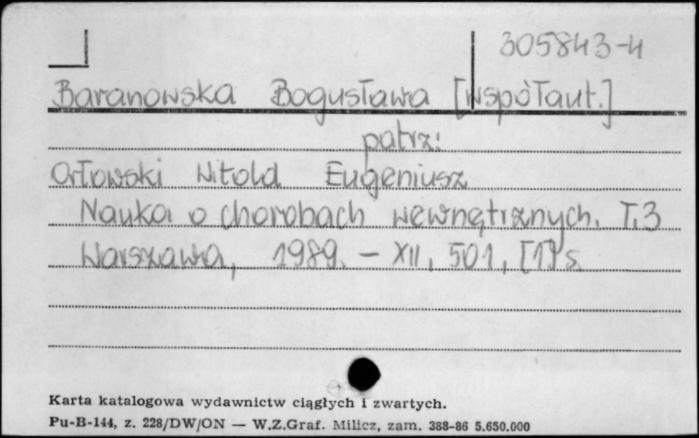 305843-4
Baranowska Bogusława [współaut.]
patrz:
Orłowski Witold Eugeniusz
Nauka o chorobach wewnętrznych. T.3
Warszawa, 1989. - XII, 501, [1] s.
Karta katalogowa wydawnictw ciągłych i zwartych.
Pu-B-144, z. 228/DW/ON — W.Z.Graf. Milicz, zam. 388-86 5.650.000